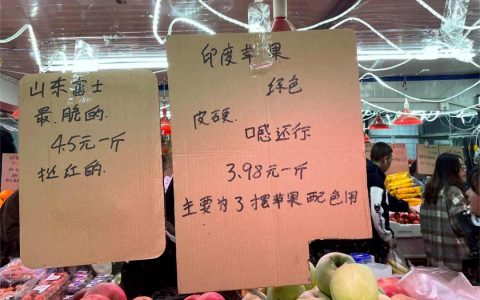 山东富士
最脆的.
4.5元一斤
拉红的.
印度苹果
绿色
皮硬.
口感还行
3.98元一斤
主要为了摆苹果配色用